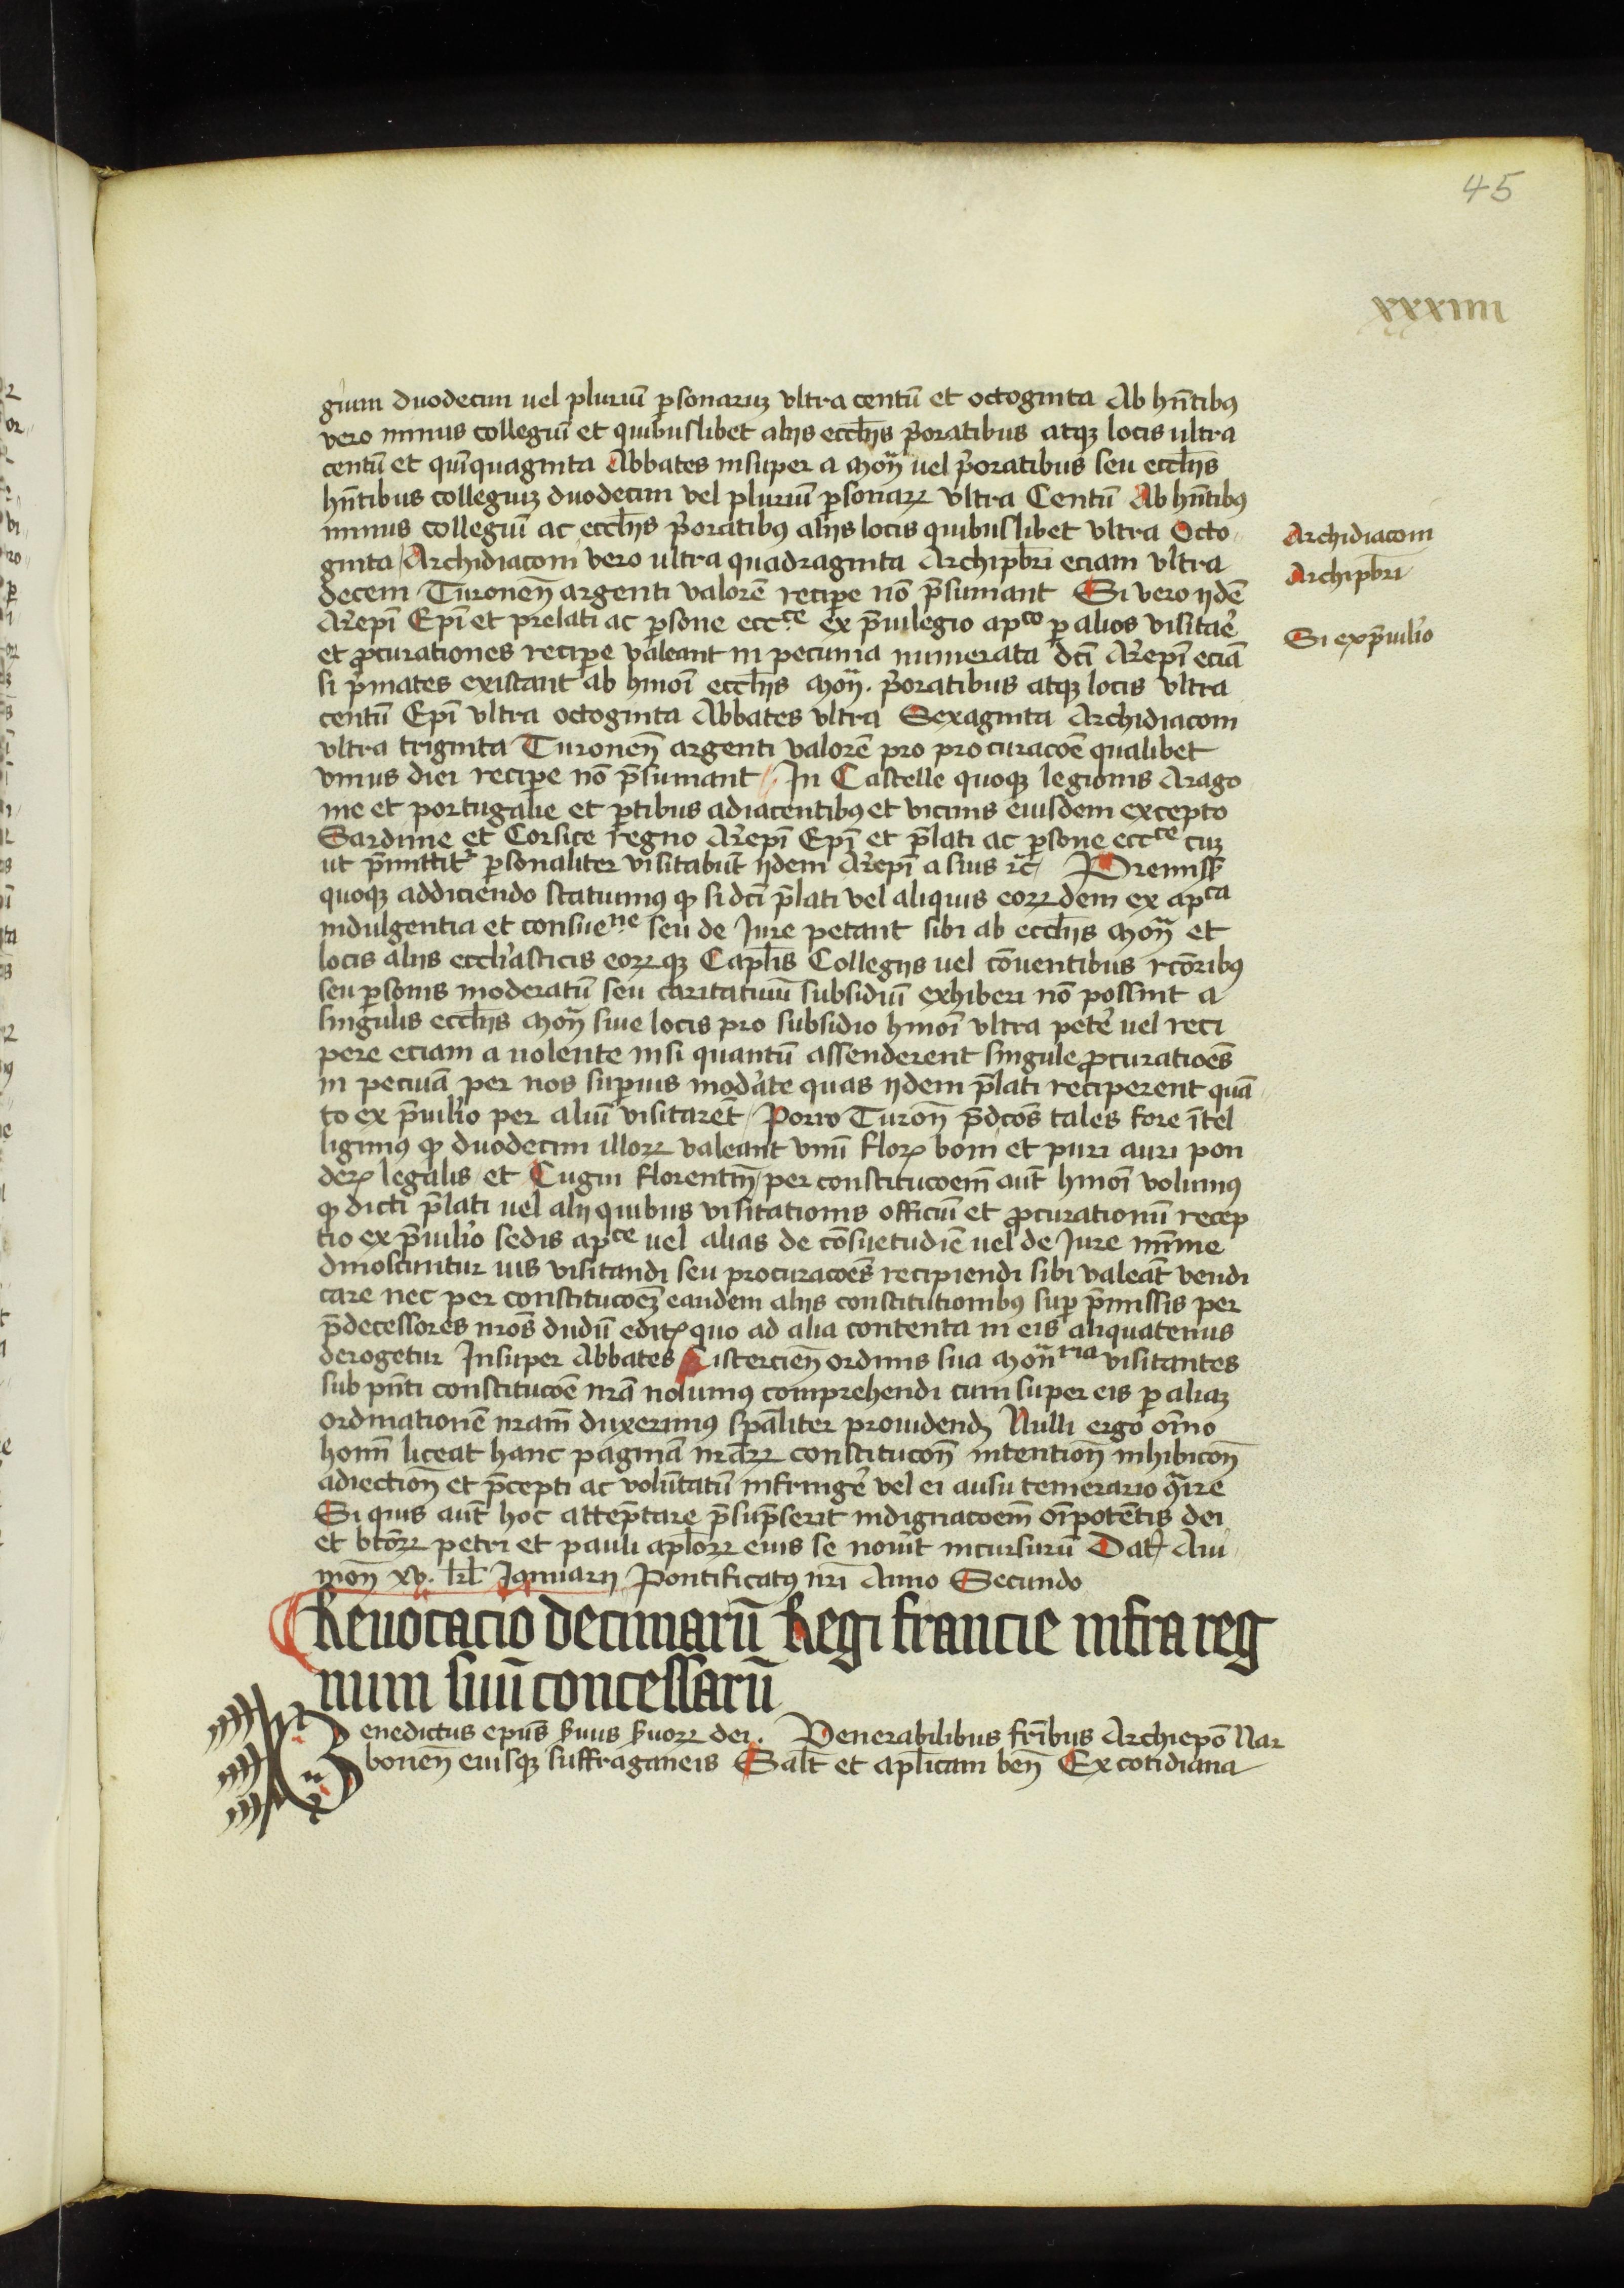 45
xxxiiii
gium duodecim uel pluriū ꝑsonaruꝫ vltra centū et octoginta Ab hn̄tibꝰ
vero minus collegiū et quibuslibet alijs eccl̄ijs p̄oratibus atqꝫ locis ultra
centū et qui̅quaginta Abbates insuper a moñ uel p̄oratibus seu eccl̄ijs
hn̄tibus collegiuꝫ duodecim vel pluriū ꝑsonaꝝ vltra Centū Ab hn̄tibꝰ
minus collegiū ac eccl̄ijs p̄oratibꝰ alijs locis quibuslibet vltra Octo
ginta Archidiaconi vero ultra quadraginta Archipb̄ri eciam vltra
decem Turonen̄ argenti valorē recipe nō p̄sumant Si vero ijdē
Arepī Epī et prelati ac ꝑsone eccᶜᵉ ex p̄uilegio apᶜᵒ ꝑ alios visitare
et ꝓcurationes recipe valeant in pecunia numerata dc̄i Arepī eciā
si p̄mates existant ab hmōi eccl̄ijs moñ. p̄oratibus atqꝫ locis vltra
centū Epī vltra octoginta Abbates vltra Sexaginta Archidiaconi
vltra triginta Turonen̄ argenti valorē pro procuracōe qualibet
vnius diei recipe nō p̄sumant In Castelle quoqꝫ legionis Arago
nie et portugalie et ꝑtibus adiacentibꝰ et vicinis eiusdem excepto
Sardinie et Corsice regno Arepī Epī et p̄lati ac ꝑsone eccᶜᵉ cuꝫ
ut p̄mittitr ꝑsonaliter visitabūt ijdem Arepī a suis rc̄ Premiss̄
quoqꝫ addiciendo statuimꝰ ꝙ si dc̄i p̄lati vel aliquis eoꝝdem ex apᶜᵃ
indulgentia et consueⁿᵉ seu de Jure petant sibi ab eccl̄ijs moñ et
locis alijs eccl̄iasticis eoꝝqꝫ Capl̄is Collegijs uel cōuentibus rc̄oribꝰ
seu ꝑsonis moderatū seu caritatiuū subsidiū exhiberi nō possint a
singulis eccl̄ijs moñ siue locis pro subsidio hmōi vltra petere uel reci
pere eciam a uolente nisi quantū assenderent singule ꝓcuratioēs
in pecuīā per nos suꝑius moderate quas ijdem p̄lati reciperent quā
to ex p̄uilio per aliū visitarēt Porro Turon̄ p̄dc̄os tales fore ītel
ligimꝰ ꝙ duodecim illoꝝ valeant vnū floꝝ boni et puri auri pon
deꝝ legalis et Cugni florentīn per constitucoem̄ aūt hmōi volumꝰ
ꝙ dicti p̄lati uel alij quibus visitationis officiū et ꝓcurationū recep
tio ex p̄uilio sedis apᶜᵉ uel alias de cōsuetudīe uel de Jure mīme
dinoscuntur ius visitandi seu procuracoēs recipiendi sibi valeāt vendi
care nec per constitucoeꝫ eandem alijs constitutionibꝰ suꝑ p̄missis per
p̄decessores nr̄os dudū editꝭ quo ad alia contenta in eis aliquatenus
derogetur Insuper Abbates Cistercien̄ ordinis sua monʳⁱᵃ visitantes
sub pn̄ti constitucoē nr̄a nolumꝰ comprehendi cum super eis ꝑ aliaꝫ
ordinationē nr̄am duxerimꝰ spāliter prouidendꝫ Nulli ergo oīno
homī liceat hanc paginā nr̄aꝝ constitucon̄ intention̄ inhibicon̄
adiection̄ et p̄cepti ac volūtatū infringere vel ei ausu temerario ꝯire
Si quis aūt hoc attēptare p̄sūpserit indignacoem̄ oīpotētis dei
et btōꝝ petri et pauli apl̄oꝝ eius se nouīt incursurū Datꝭ Aui
nion̄ xv. kl̄ Januarij Pontificatꝰ nr̄i Anno Secundo
Archidiaconi
Archipb̄ri
Si ex p̄uilio
Reuocacio decimarū Regi francie infra reg
num suū concessarū
Benedictus ep̄us s̄uus s̄uoꝝ dei. Venerabilibus fr̄ibus Archiepō Nar
bonen̄ eiusqꝫ suffraganeis Salt̄ et apl̄icam ben̄ Ex cotidiana